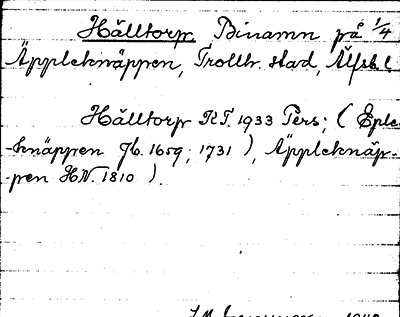 Hålltorp Binamn på 1/4
Äppleknäppen, Trollh. stad, Älfsb. l
Hålltorp R.T. 1933 Pers; (Eple-
-knäppen Jb. 1659; 1731), Äppleknäp-
-pen H.N. 1810).